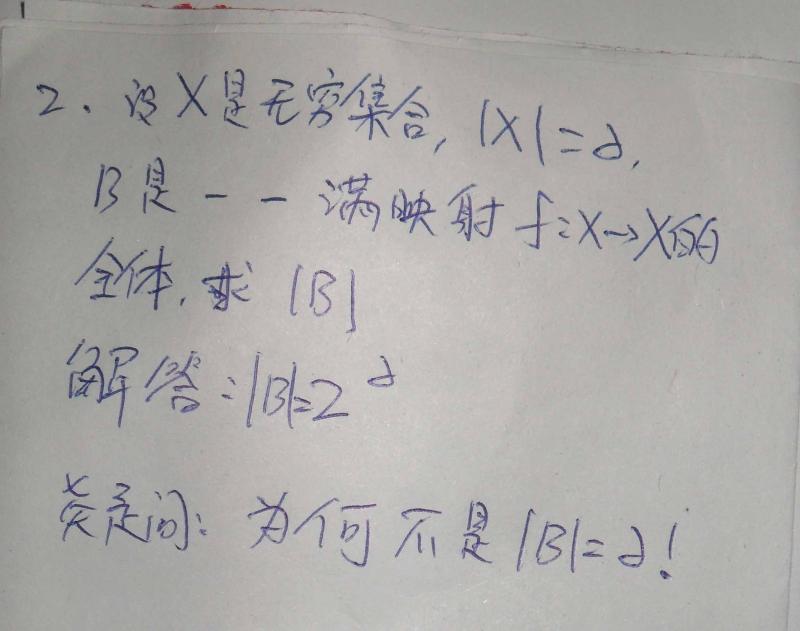 2. 设X是无穷集合, |X|=∂,
B是一一满映射 f:X→X的
全体, 求 |B|
解答:|B|=2^∂
类是问: 为何不是|B|=∂!